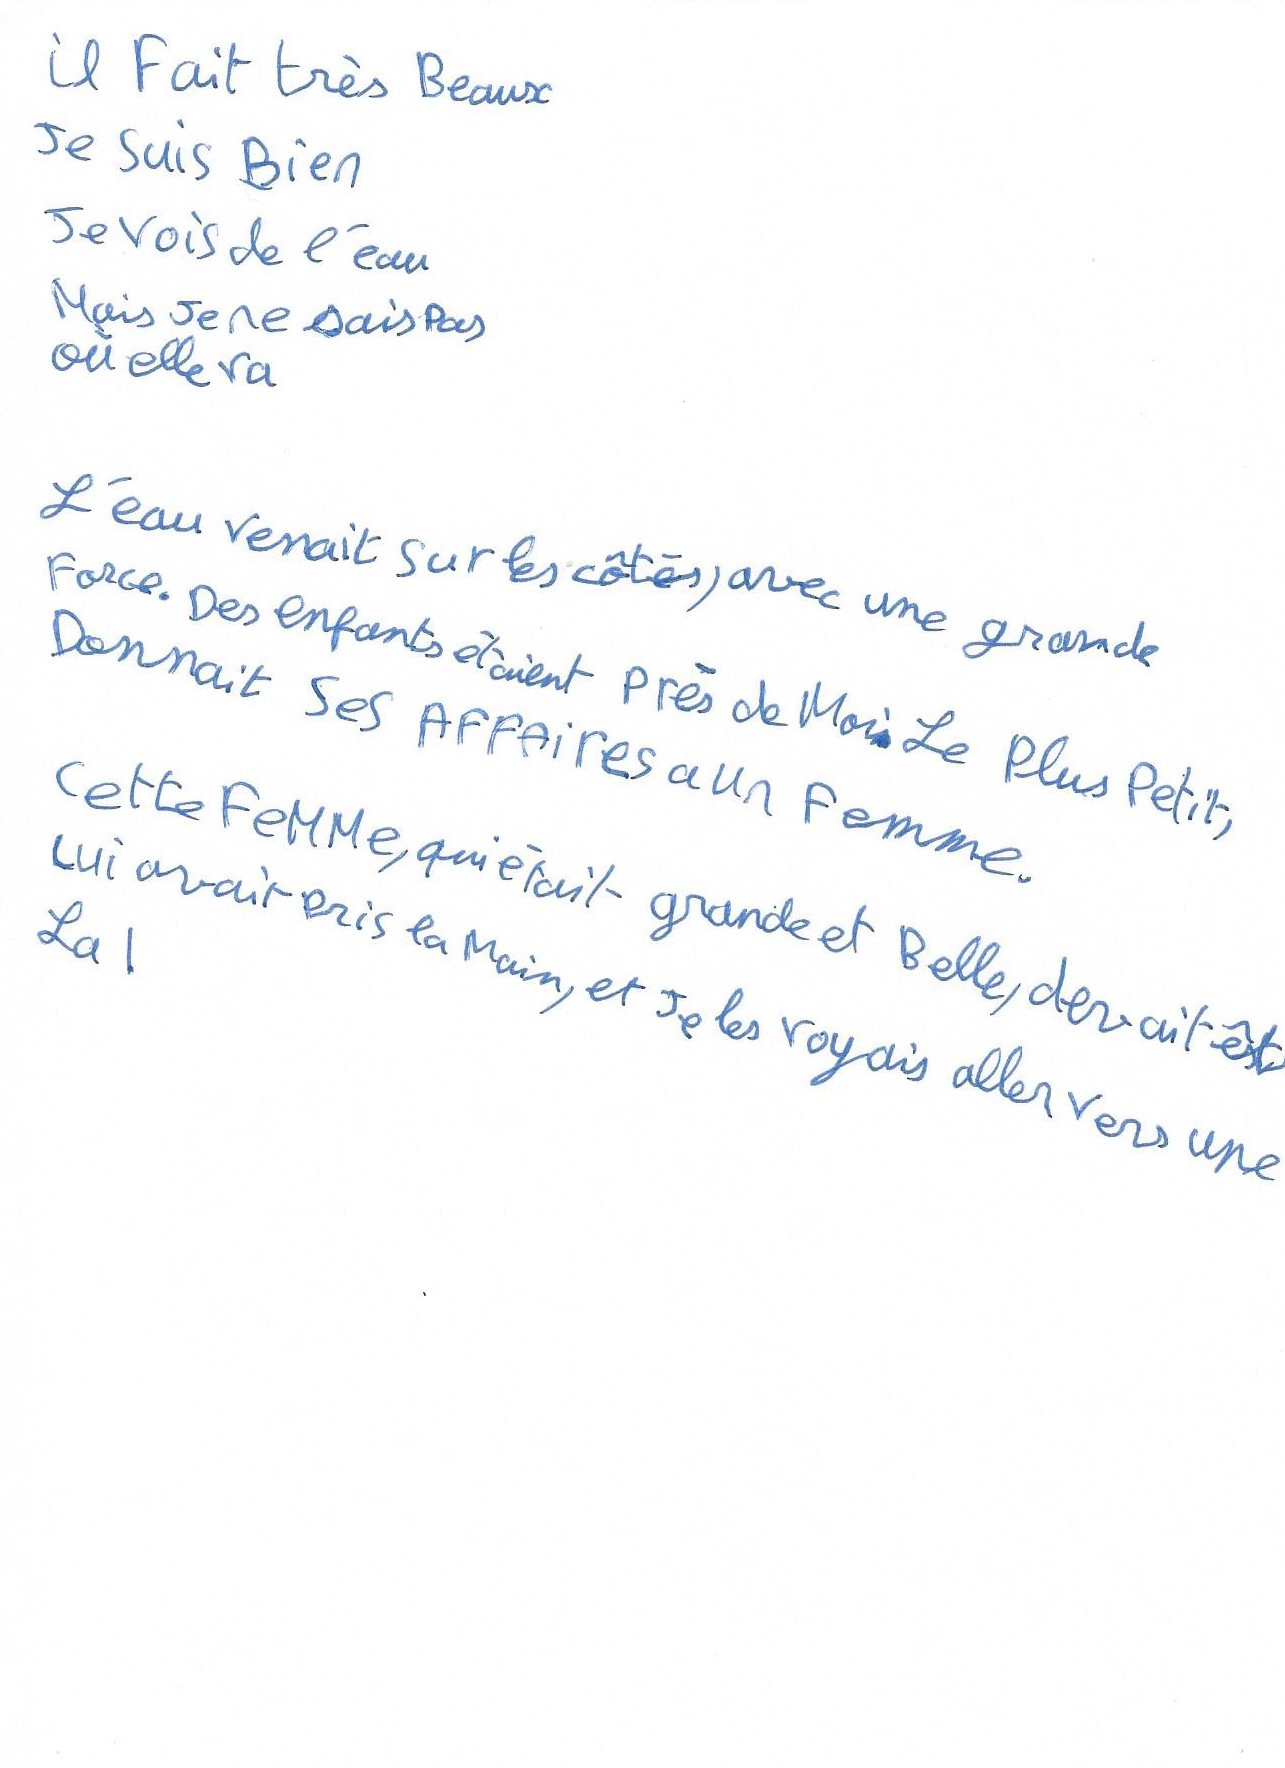 il Fait très Beaux
Je suis Bien
Je vois de l'eau
Mais Je ne sais Pas
où elle va
L'eau venait sur les côtés, avec une grande
Force. Des enfants étaient Près de Moi. Le Plus Petit,
Donnait ses AFFAires a un Femme.
Cette FeMMe, qui était grande et Belle, devait êt
Lui avait Pris la Main, et Je les voyais aller vers une
La